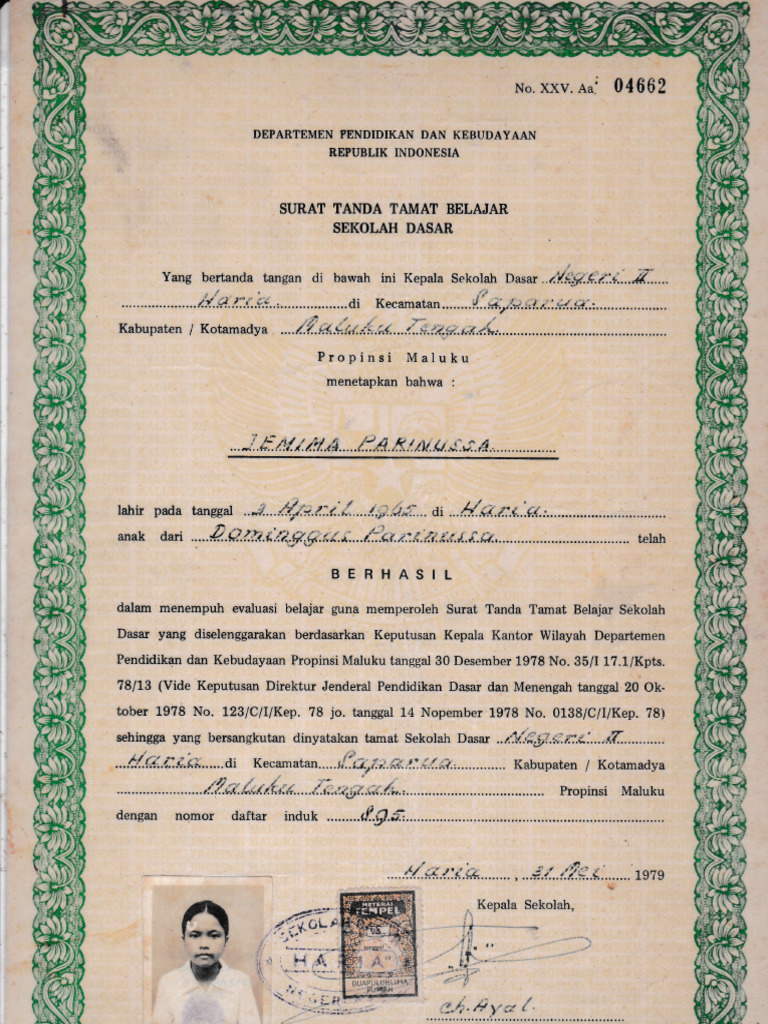 No. XXV. Aa. 04662
DEPARTEMEN PENDIDIKAN DAN KEBUDAYAAN
REPUBLIK INDONESIA
SURAT TANDA TAMAT BELAJAR
SEKOLAH DASAR
Yang bertanda tangan di bawah ini Kepala Sekolah Dasar Negeri II
Haria. di Kecamatan Saparua.
Kabupaten / Kotamadya Maluku Tengah.
Propinsi Maluku
menetapkan bahwa :
JEMIMA PARINUSSA
lahir pada tanggal 3 April 1965 di Haria.
anak dari Dominggus Parinussa telah
BERHASIL
dalam menempuh evaluasi belajar guna memperoleh Surat Tanda Tamat Belajar Sekolah
Dasar yang diselenggarakan berdasarkan Keputusan Kepala Kantor Wilayah Departemen
Pendidikan dan Kebudayaan Propinsi Maluku tanggal 30 Desember 1978 No. 35/I 17.1/Kpts.
78/13 (Vide Keputusan Direktur Jenderal Pendidikan Dasar dan Menengah tanggal 20 Ok-
tober 1978 No. 123/C/I/Kep. 78 jo. tanggal 14 Nopember 1978 No. 0138/C/I/Kep. 78)
sehingga yang bersangkutan dinyatakan tamat Sekolah Dasar Negeri II
Haria di Kecamatan Saparua. Kabupaten / Kotamadya
Maluku Tengah. Propinsi Maluku
dengan nomor daftar induk 895.
Haria, 31 Mei 1979
Kepala Sekolah,
METERAI
TEMPEL
DUAPULUHLIMA
RUPIAH
SEKOLAH
HARIA
NEGERI
Ch. Ayal.